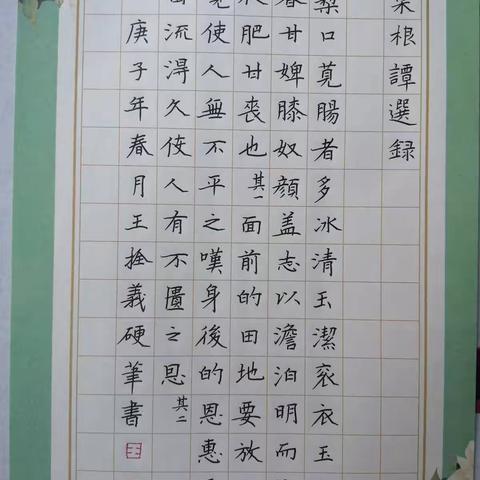 菜根譚選録
藜口莧腸者多冰清玉潔袞衣玉
者甘婢膝奴顔盖志以澹泊明而
肥甘喪也其一面前的田地要放
寬使人無不平之嘆身後的恩惠
流淂久使人有不匱之恩其二
庚子年春月王拴義硬筆書
王